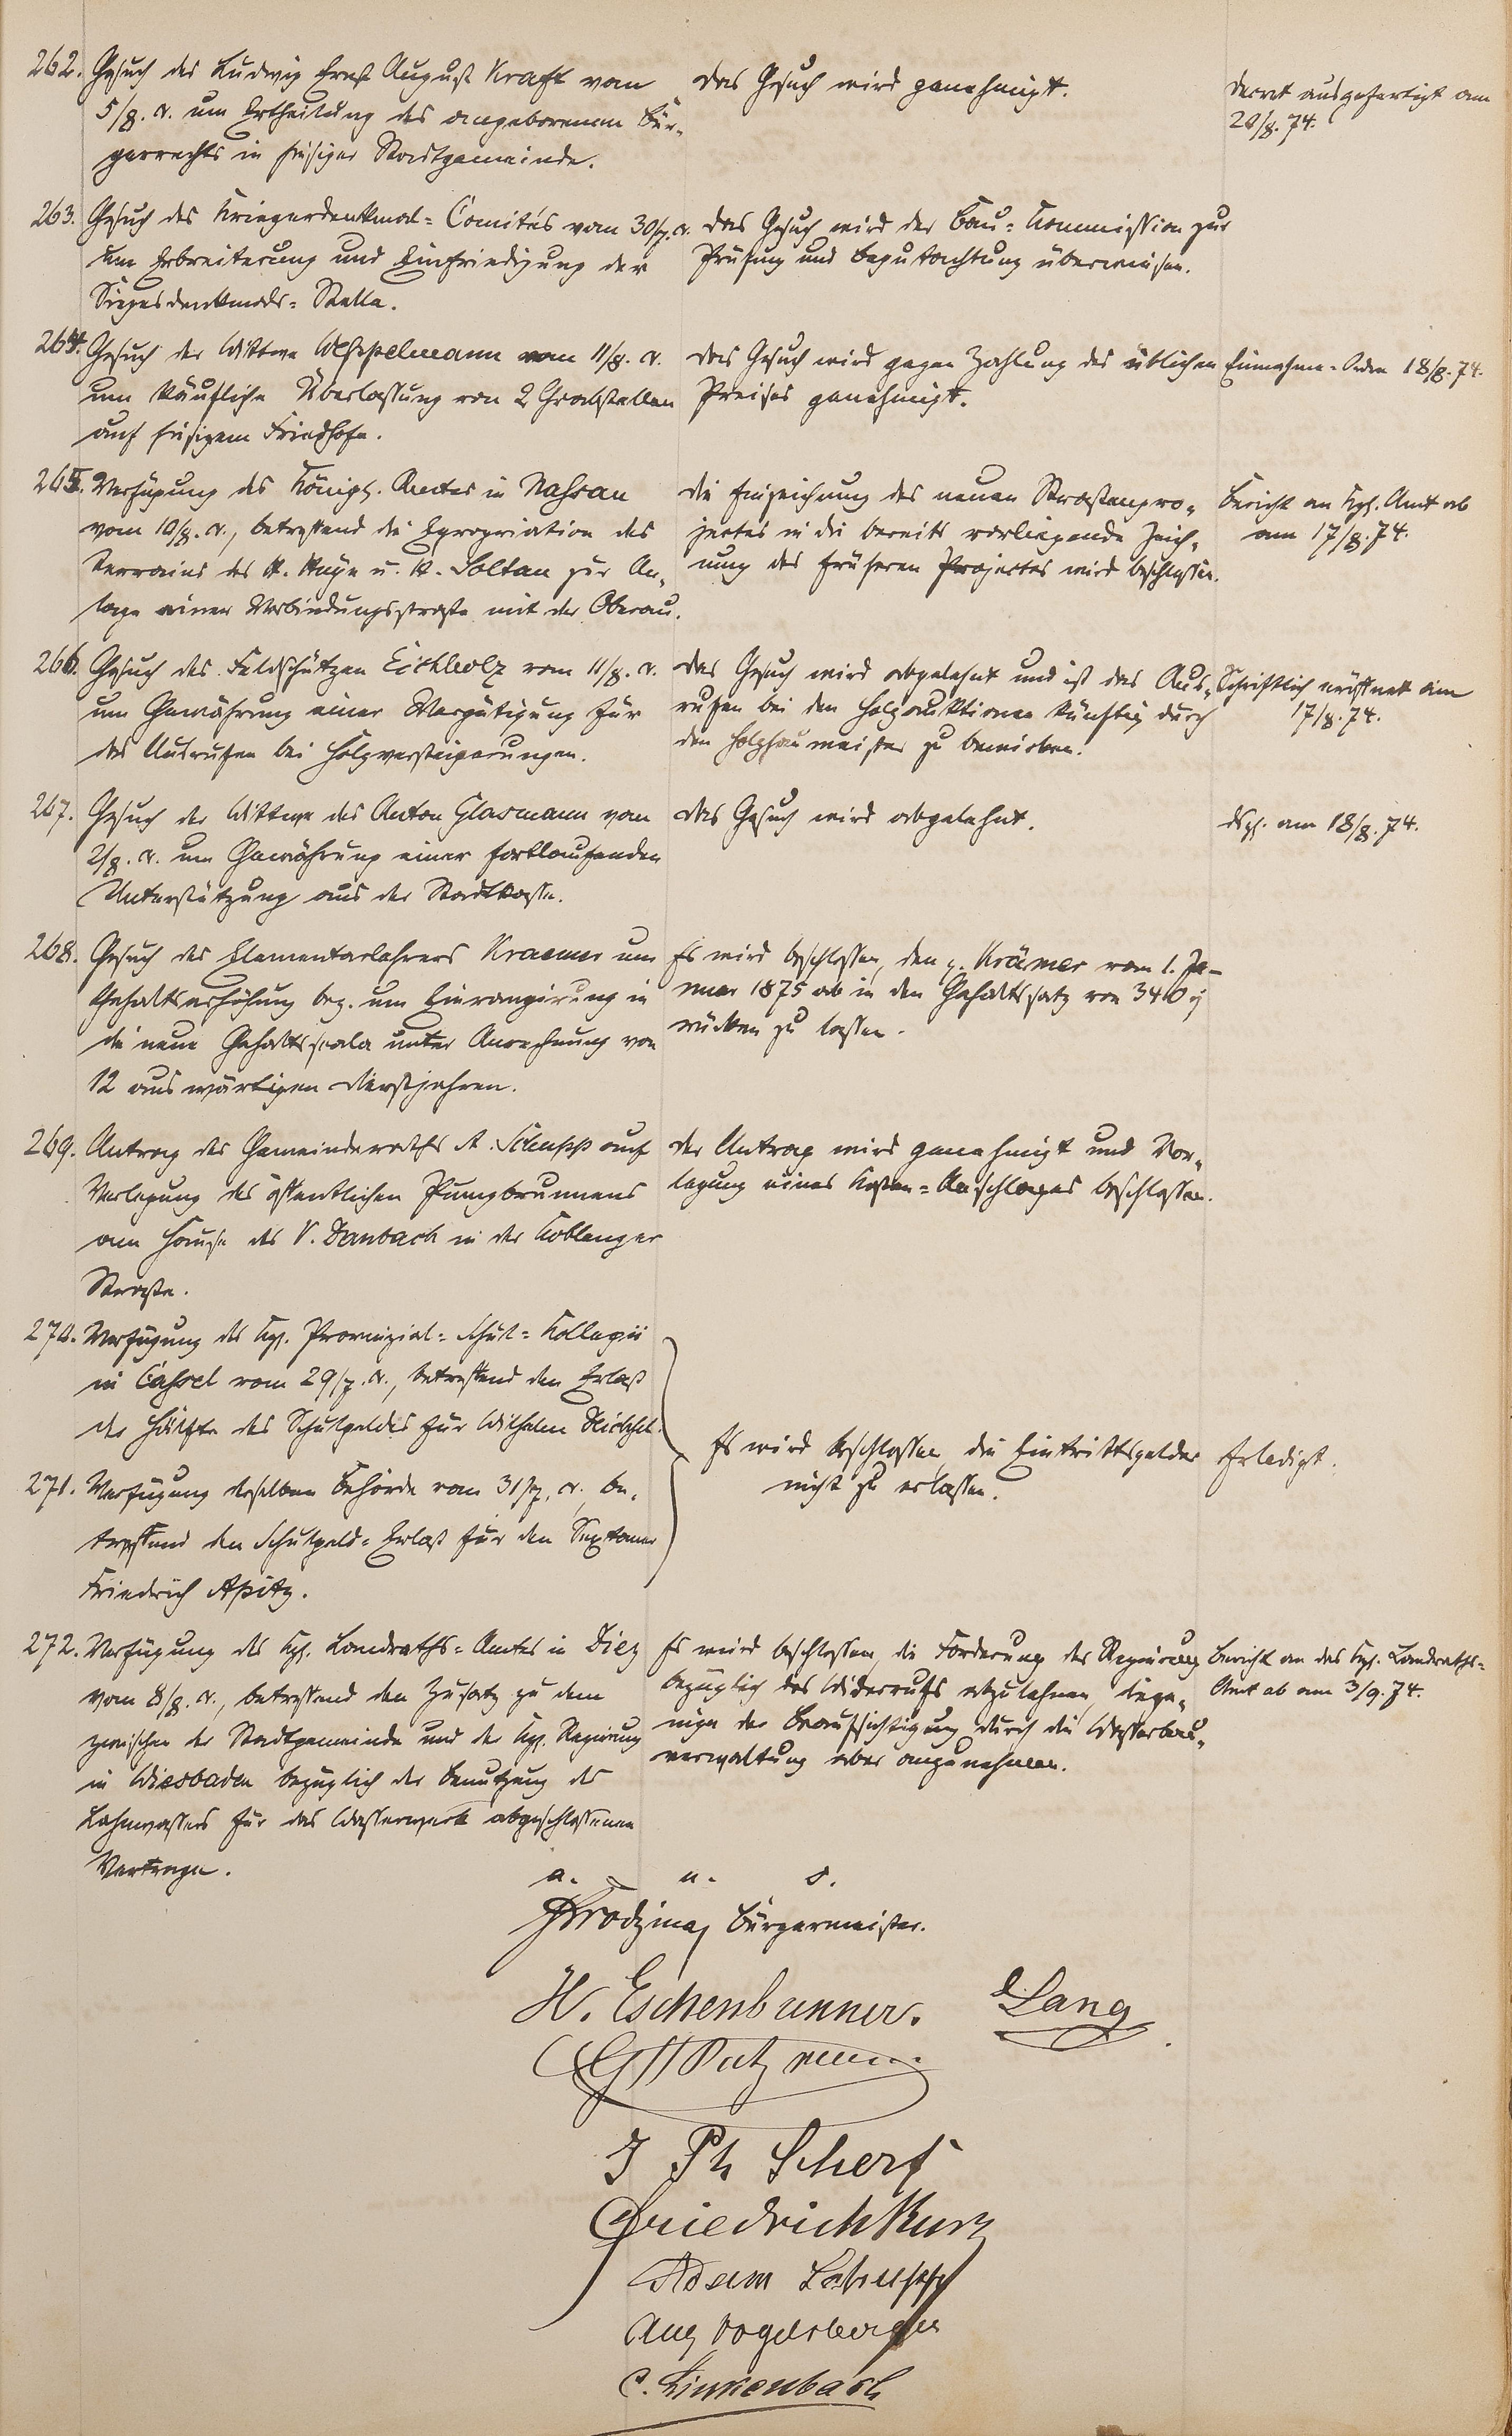 262. Gesuch des Ludwig Ernst August Kraft vom
5/8. cr. um Ertheilung des angeborenen Bür-
gerrechts in hiesiger Stadtgemeinde.
Das Gesuch wird genehmigt.
Decret ausgefertigt am
20/8. 74.
263. Gesuch des Kriegerdenkmal-Comités vom 30/7. cr.
um Erbreiterung und Einfriedigung der
Siegesdenkmals-Stelle.
Das Gesuch wird der Bau-Kommission zur
Prüfung und Begutachtung überwiesen.
264. Gesuch der Wittwe Weppelmann vom 11/8. cr.
um käufliche Überlassung von 2 Grabstellen
auf hiesigem Friedhofe.
Das Gesuch wird gegen Zahlung des üblichen
Preises genehmigt.
Einnahme-Ordre 18/8. 74.
265. Verfügung des Königl. Amtes in Nassau
vom 10/8. cr., betreffend die Expropriation des
Terrains des H. Huye u. A. Soltau zur An-
lage einer Verbindungsstraße mit der Oberau.
Die Einzeichnung des neuen Straßenpro-
jectes in die bereits vorliegende Zeich-
nung des früheren Projectes wird beschlossen.
Bericht an Kgl. Amt ab
am 17/8. 74.
266. Gesuch des Feldschützen Eichholz vom 11/8. cr.
um Gewährung einer Vergütigung für
das Ausrufen bei Holzversteigerungen.
Das Gesuch wird abgelehnt und ist das Aus-
rufen bei den Holzauktionen künftig durch
den Holzhauermeister zu bewirken.
Schriftlich eröffnet am
17/8. 74.
267. Gesuch der Wittwe des Anton Glasmann vom
2/8. cr. um Gewährung einer fortlaufenden
Unterstützung aus der Stadtkasse.
Das Gesuch wird abgelehnt.
dsgl. am 18/8. 74.
268. Gesuch des Elementarlehrers Kraemer um
Gehaltserhöhung bez. um Einrangirung in
die neue Gehaltsscala unter Anrechnung von
12 auswärtigen Dienstjahren.
Es wird beschlossen, den p. Krämer vom 1. Ja-
nuar 1875 ab in den Gehaltssatz von 340
rücken zu lassen.
269. Antrag des Geminderaths A. Schupp auf
Verlegung des öffentlichen Pumpbrunnens
am Hause des V. Danbach in der Koblenzer
Straße.
Der Antrag wird genehmigt und Vor-
legung eines Kosten-Anschlages beschlossen.
270. Verfügung des Kgl. Provinzial-Schul-Kollegii
in Cassel vom 29/7. cr., betreffend den Erlaß
der Hälfte des Schulgeldes für Wilhelm
271. Verfügung derselben Behörde vom 31/7. cr. be-
treffend den Schulgeld-Erlaß für den Sextaner
Friedrich Apitz.
Es wird beschlossen, die Eintrittsgelder
nicht zu erlassen.
Erledigt.
272. Verfügung des Kgl. Landraths-Amtes in Diez
vom 8/8. cr., betreffend den Zusatz zu dem
zwischen der Stadtgemeinde und der Kgl. Regierung
in Wiesbaden bezüglich der Benutzung des
Lahnwassers für das Wasserwerk abgeschlossenen
Vertrage.
Es wird beschlossen, die Forderung der Regierung
bezüglich des Widerrufs abzulehnen, dieje-
nige der Beaufsichtigung durch die Wasserbau-
verwaltung aber anzunehmen.
Bericht an das Kgl. Landraths-
Amt ab am 3/9. 74.
a. u. s.
Bürgermeister.
H. Eschenbrenner. Lang
J Ph Scherf
Friedrich Kurz
Adam Schupp
Aug Vogelsberger
C. Linkenbach